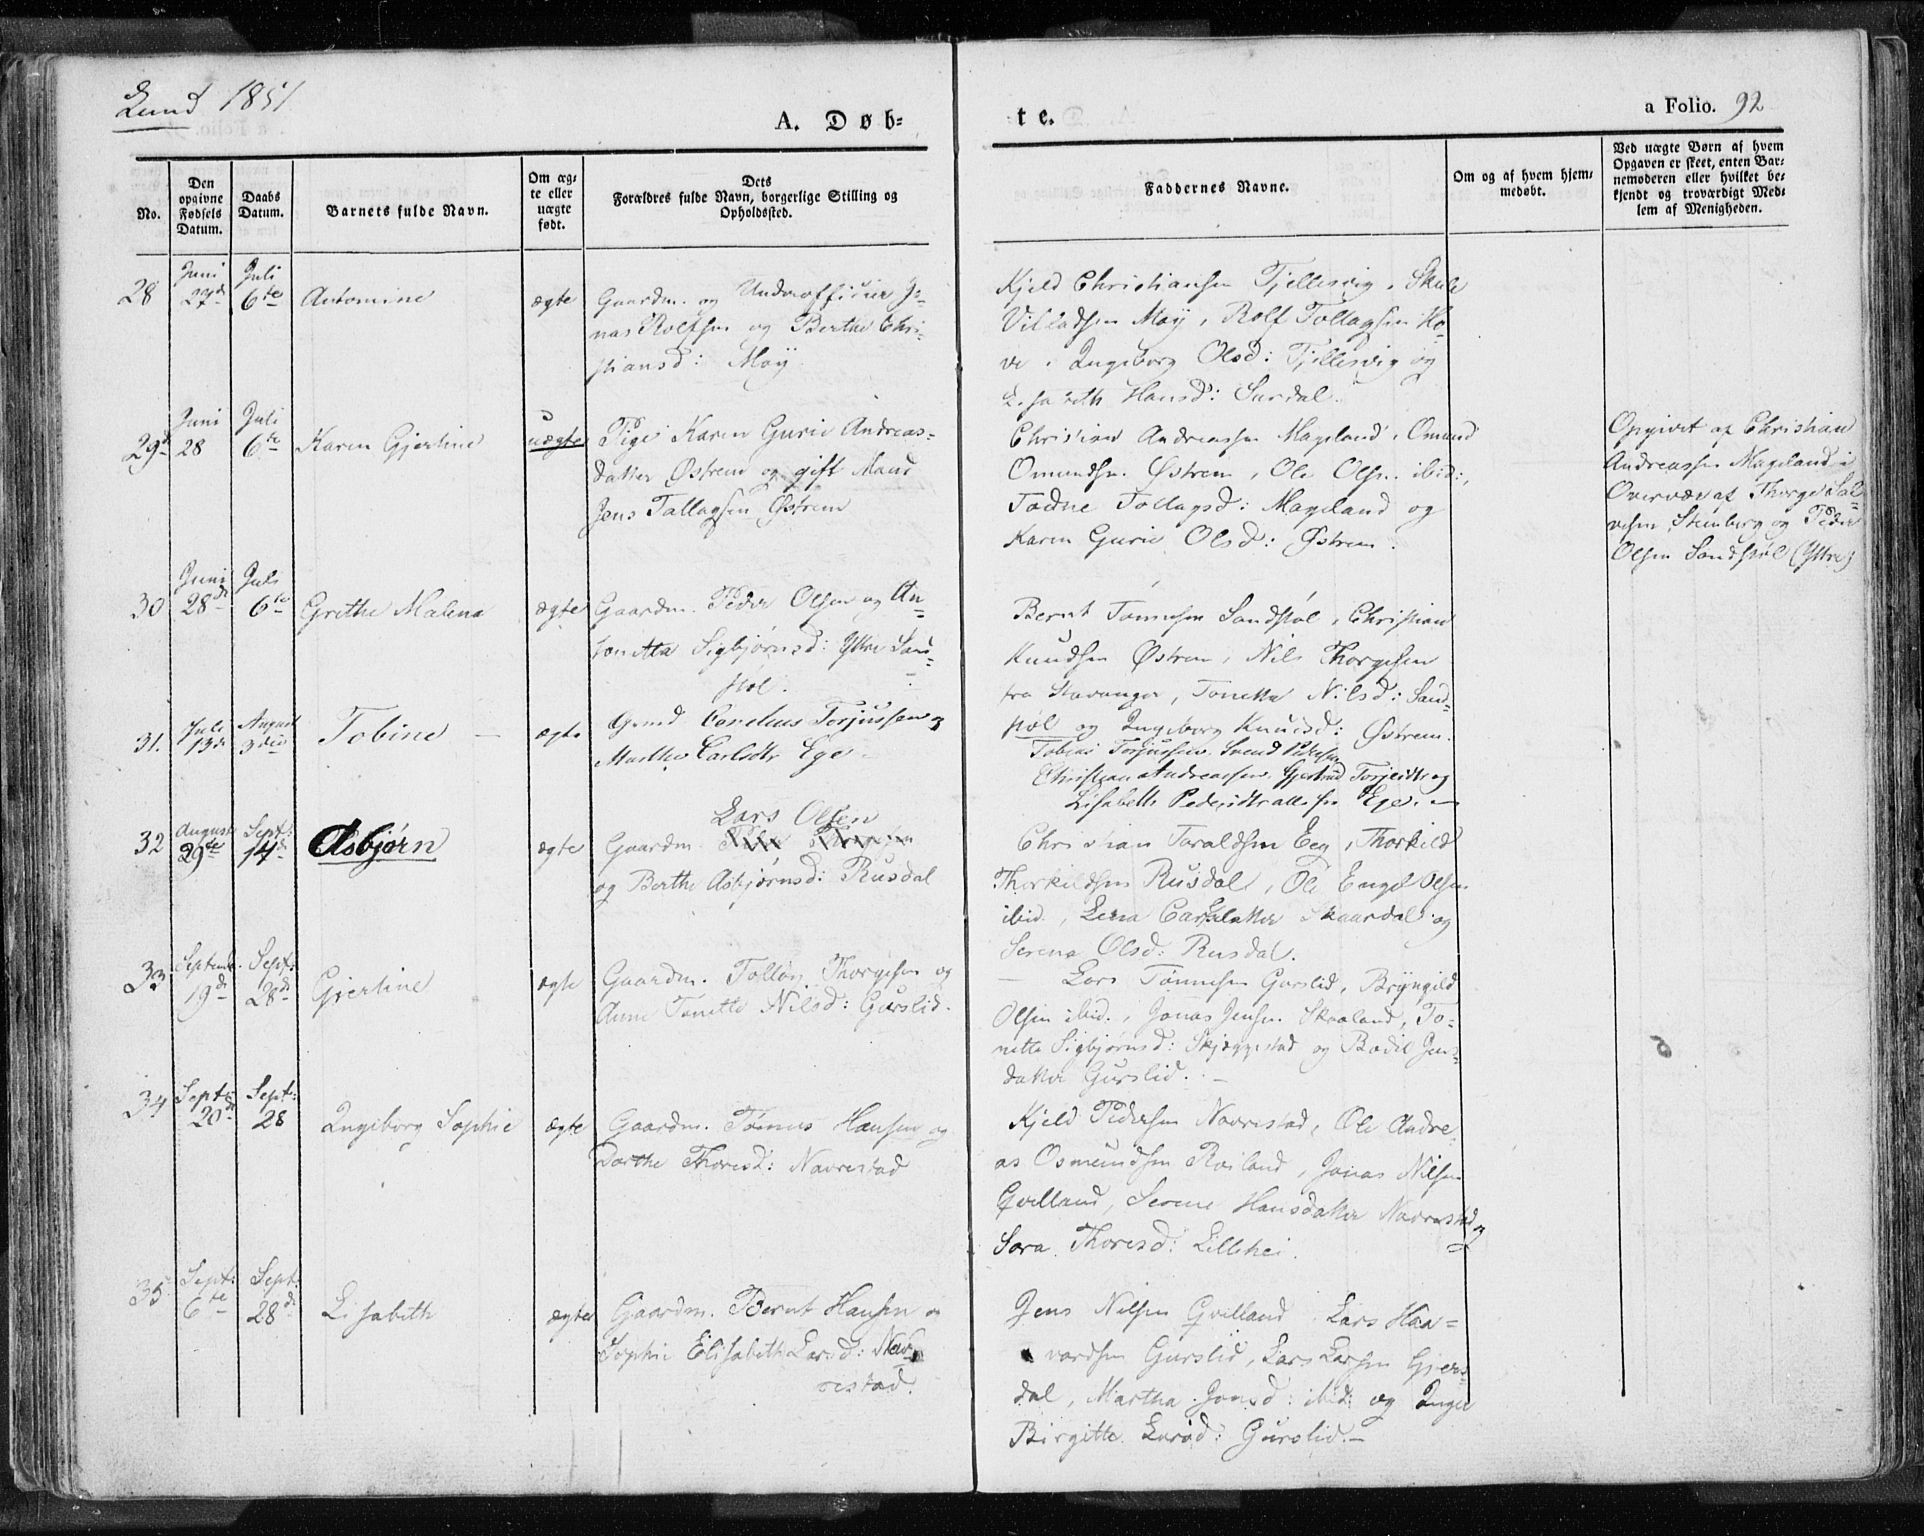 Lund 1851
A. Døb-
te.
a Folio. 92
No.
Den opgivne Fødsels Datum.
Daabs Datum.
Barnets fulde Navn.
Om æg-
te eller
uægte
født.
Dets
Forældres fulde Navn, borgerlige Stilling og
Opholdssted.
Faddernes Navne.
Om og af hvem hjem-
medøbt.
Ved uægte Børn af hvem
Opgaven er skeet, enten Bar-
nemoderen eller hvilket be-
kjendt og troværdigt Med-
lem af Menigheden.
28
Juni 27d
Juli 6te
Antomine
ægte
Gaardm. og Underofficier Jo-
nas Rolfsen og Berthe Chri-
stiansd: Moÿ
Kjeld Christiansen Fjellesvig, Skule
Villadsen Moÿ, Rolf Tollagsen Ho-
ve, Ingeborg Olsd: Fjellesvig og
Lisabeth Hansd: Surdal.
29
Juni 28
Juli 6te
Karen Gjertine
uægte
Pige Karen Gurie Andreas-
datter Østrem og gift Mand
Jens Tallagsen Østrem
Christian Andreassen Mageland, Omund
Omundsen Østrem, Ole Olsen ibid:,
Todne Tollagsd: Mageland og
Karen Gurie Olsd: Østrem.
Opgivet af Christian
Andreassen Mageland i
Overvær af Thorger Sal-
vesen Steinberg og Peder
Olsen Sandstøl (Ytre)
30
Juni 28de
Juli 6te
Grethe Malena
ægte
Gaardm. Peder Olsen og An-
tonetta Sigbjørnsd: Ytre San-
støl.
Bernt Tønnesen Sandstøl, Christian
Knudsen Østrem, Nils Thorgersen
fra Stavanger, Tonette Nilsd: Sand-
støl og Ingeborg Knudsd: Østrem.
31.
Juli 13de
August 3die
Tobine
ægte
Grmd Cornelius Torjussen og
Marthe Carlsdtr Ege
Tobias Torjussen, Svend Pedersen
Christian Andreassen, Gjertrud Torjesdtr og
Lisabeth Pedersdtr alle fra Ege.
32
August 29te
Sept: 14d
Asbjørn
ægte
Lars Olsen
Gaardm.
og Berthe Asbjørnsd: Rusdal
Christian Taraldsen Eeg, Thorkild
Thorkildsen Rusdal, Ole Engel Olsen
ibid., Lena Carlsdatter Skaardal og
Serena Olsd: Rusdal.
33
Septemb. 19d
Sept: 28d
Gjertine
ægte
Gaardm. Tolløv Thorgersen og
Anne Tonette Nilsd: Gurslid.
Lars Tønnesen Gurslid, Brÿngild
Olsen ibid., Jonas Jensen Skaaland, To-
nette Sigbjørnsd: Skjæggestad og Bodil Jens-
datter Gurslid.
34
Sept: 20d
Sept: 28
Ingeborg Sophie
ægte
Gaardm. Tønnes Hansen og
Dorthe Thoresd: Navrestad
Kjeld Pedersen Navrestad, Ole Andre-
as Osmundsen Roiland, Jonas Nilsen
Qvelland, Serene Hansdatter Navrestad og
Sara Thoresd: Lillehei.
35
Sept: 6te
Sept: 28d
Lisabeth
ægte
Gaardm. Bernt Hansen og
Sophie Elisabeth Larsd: Nav-
restad.
Jens Nilsen Qvelland, Lars Haa-
vardsen Gurslid, Lars Larsen Gjers-
dal, Martha Jonsd: ibid: og Inger
Birgitte Larsd: Gurslid.